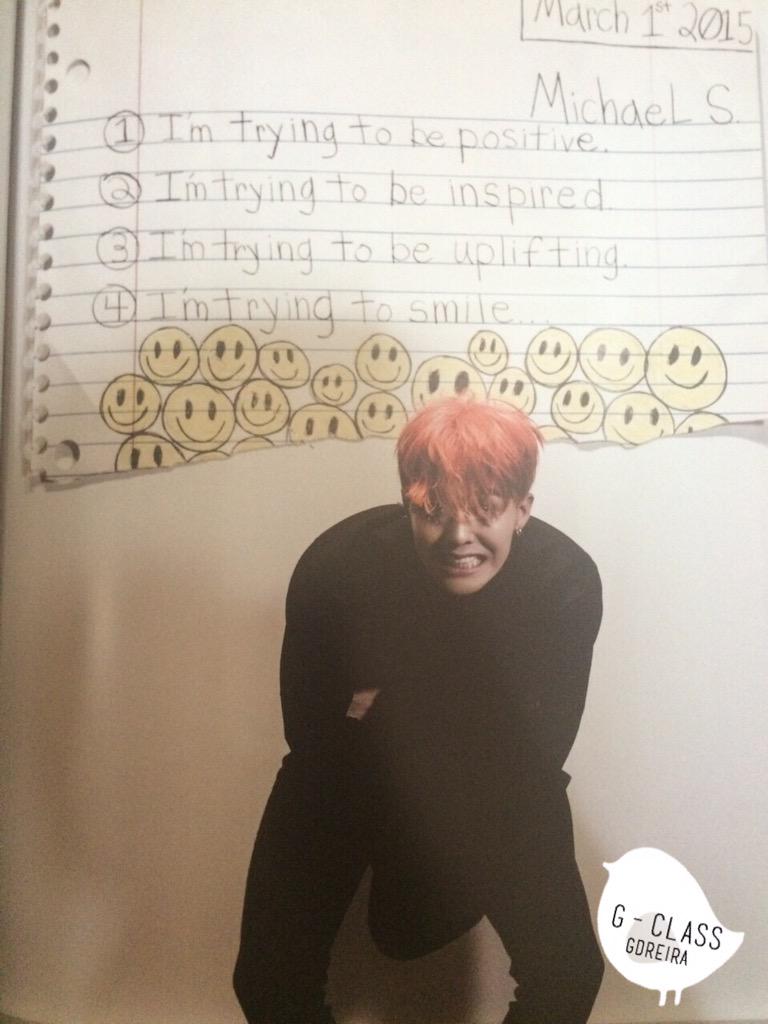 March 1st 2015
Michael S.
① I'm trying to be positive.
② I'm trying to be inspired.
③ I'm trying to be uplifting.
④ I'm trying to smile....
G - CLASS
GDREIRA